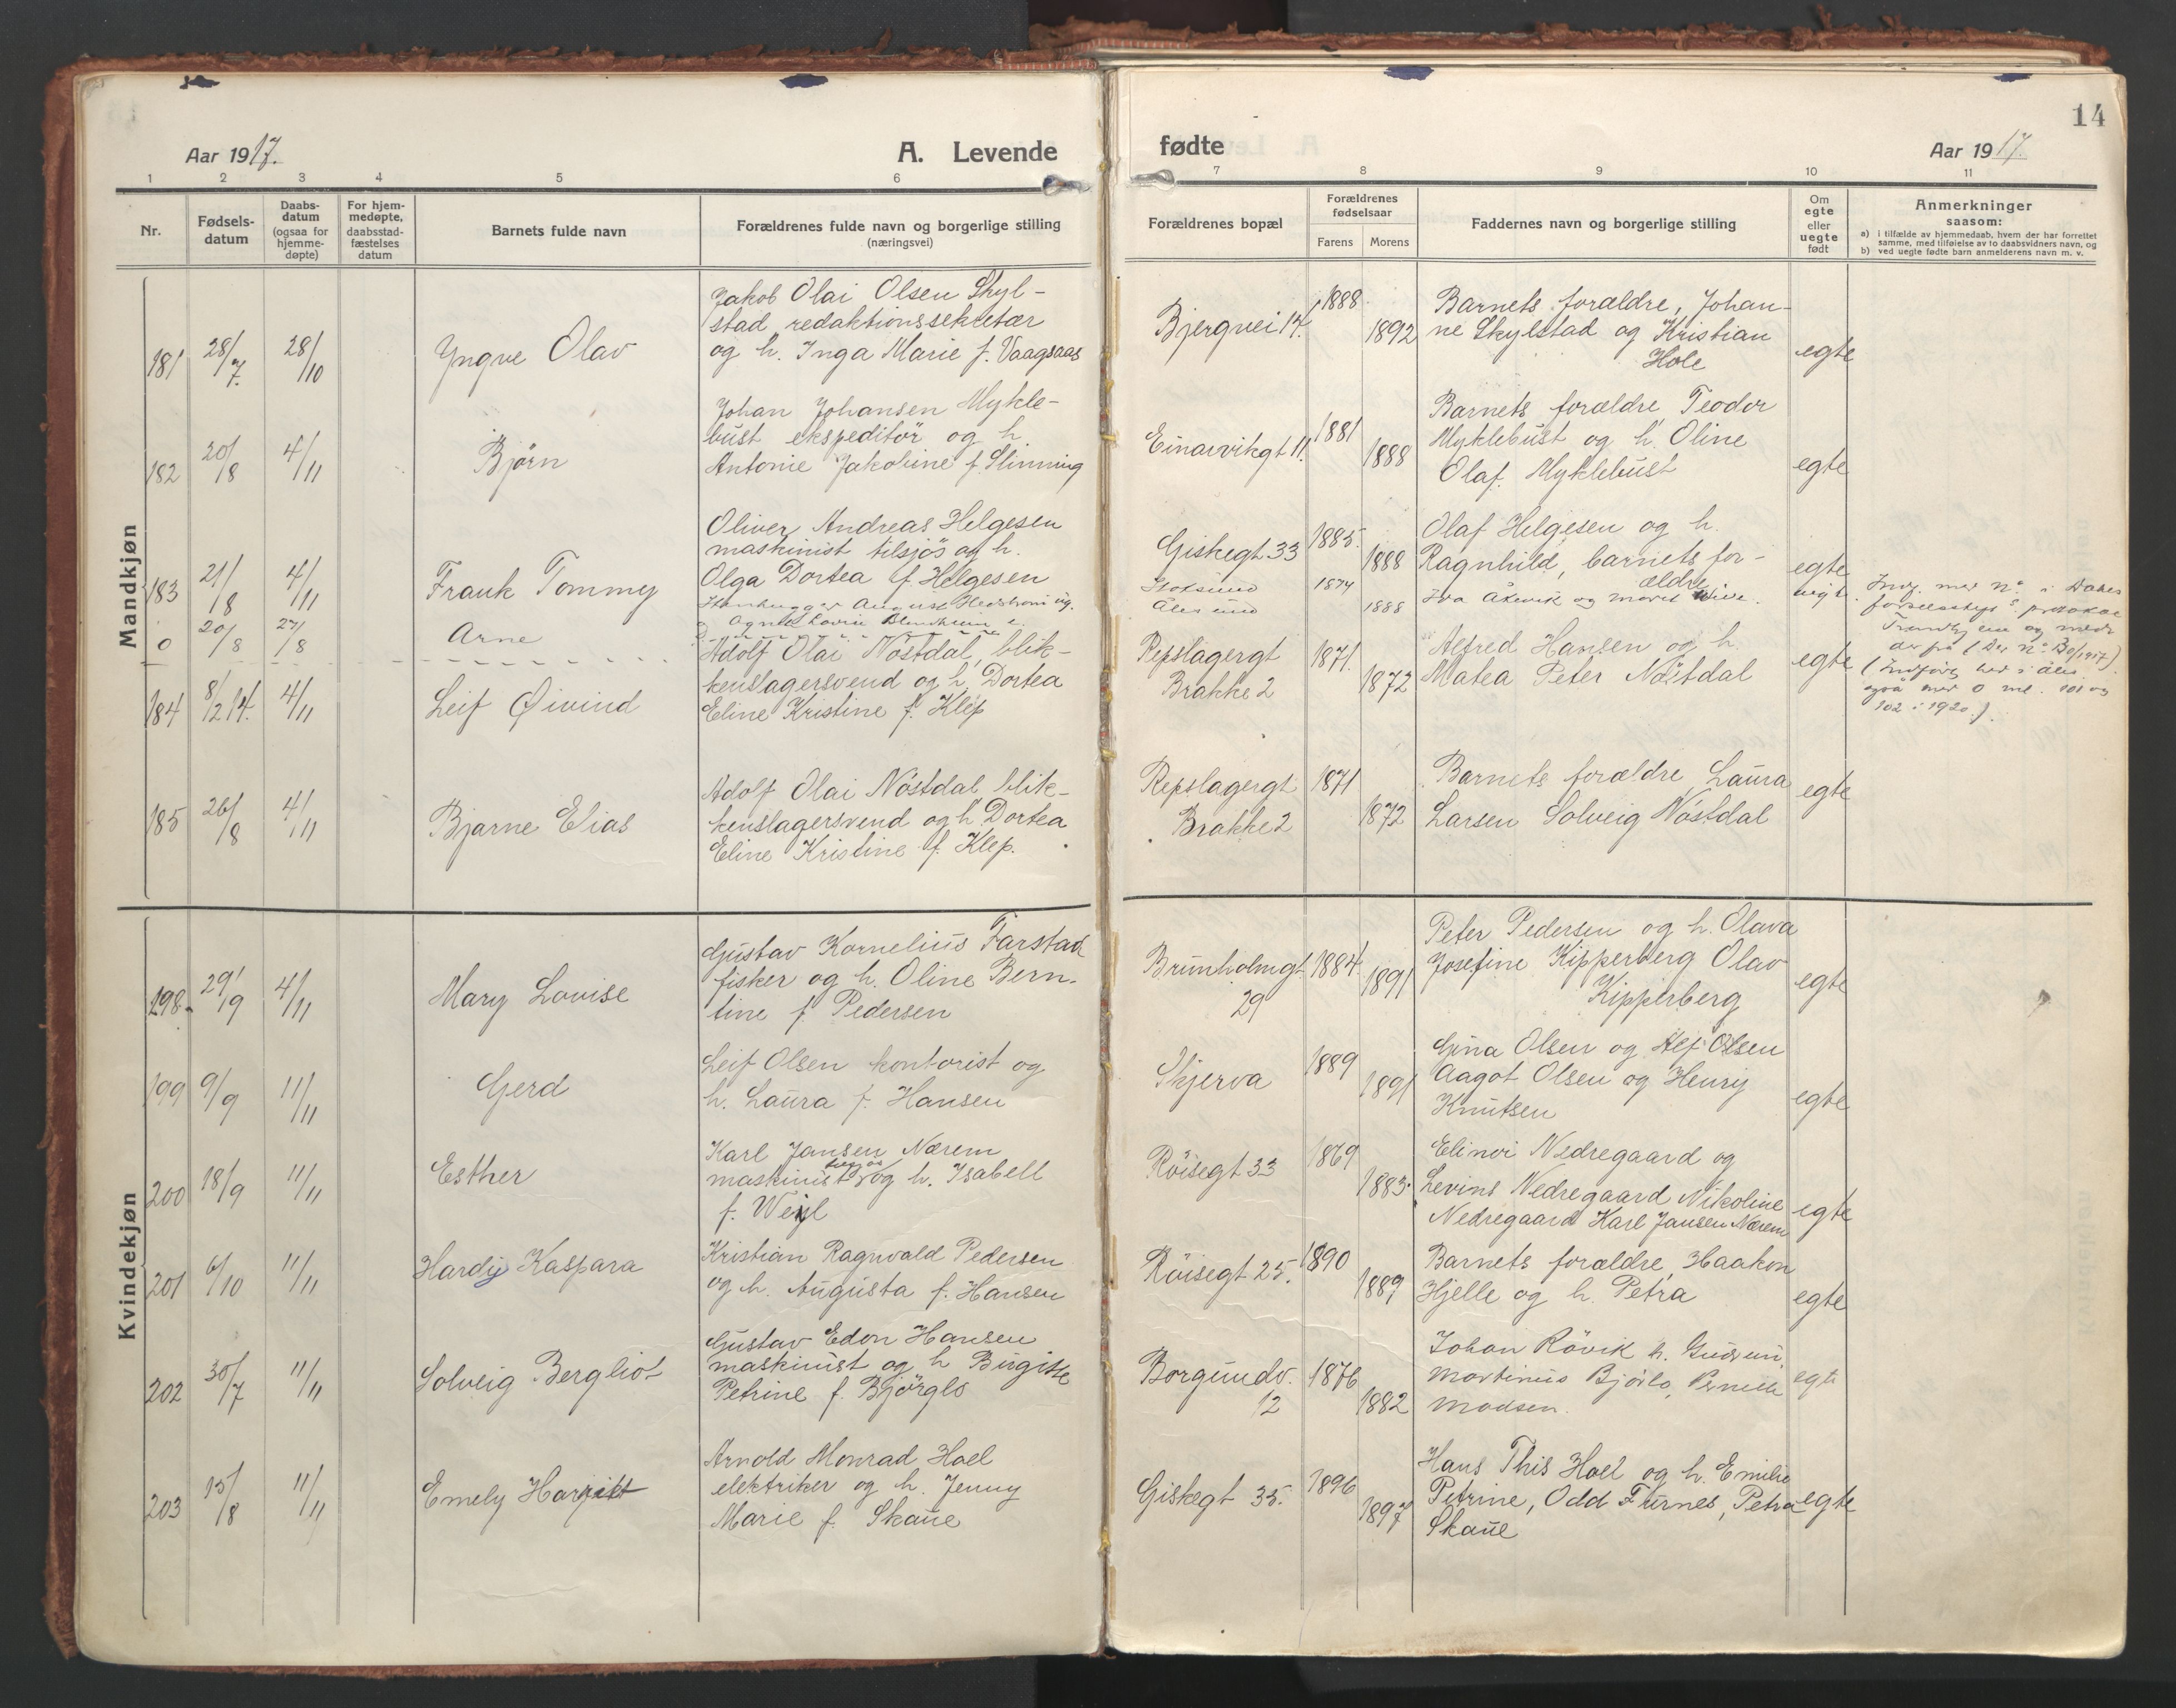 14
Aar 1917.
A. Levende
fødte
Aar 1917.
1 2 3 4 5 6 7 8 9 10 11
Nr.
Fødsels-
datum
Daabs-
datum
(ogsaa for
hjemme-
døpte)
For hjem-
medøpte,
daabsstad-
fæstelses
datum
Barnets fulde navn
Forældrenes fulde navn og borgerlige stilling
(næringsvei)
Forældrenes bopæl
Forældrenes
fødselsaar
Farens Morens
Faddernes navn og borgerlige stilling
Om
egte
eller
uegte
født
Anmerkninger
saasom:
a) i tilfælde av hjemmedaab, hvem der har forrettet
samme, med tilføielse av to daabsvidners navn, og
b) ved uegte fødte barn anmelderens navn m. v.
Mandkjøn
181 28/7. 28/10 Yngve Olav
Jakob Olai Olsen Skyl-
stad redaktionssekretær
og h. Inga Marie f. Vaagsaas
Bjergvei 14. 1888 1892
Barnets forældre, Johan-
ne Skylstad og Kristian
Hole
egte
182 20/8 4/11 Bjørn
Johan Johansen Mykle-
bust ekspeditör og h.
Antonie Jakobine f. Slinning
Einarvikgt 11. 1881 1888
Barnets forældre Teodor
Myklebust og h. Oline
Olaf Myklebust
egte
183 21/8 4/11 Frank Tommy
Oliver Andreas Helgesen
maskinist tilsjös og h.
Olga Dortea f. Helgesen
Giskegt 33 1885. 1888
Olaf Helgesen og h.
Ragnhild, barnets for-
ældre
egte
0 20/8 27/8 Arne
Stenhugger August Hedstrøm ug.
Agnes Lovise
Stoksund
Ålesund
1874 1888
og moren
uegt.
184 8/2 14. 4/11 Leif Øivind
Adolf Olai Nöstdal, blik-
kenslagersvend og h. Dortea
Eline Kristine f. Klep
Repslagergt
Brakke 2
1871. 1872
Alfred Hansen og h.
Matea Peter Nöstdal
egte
185 26/8 4/11 Bjarne Elias
Adolf Olai Nöstdal blik-
kenslagersvend og h. Dortea
Eline Kristine f. Klep.
Repslagergt
Brakke 2
1871 1872
Barnets forældre, Laura
Larsen Solveig Nöstdal
egte
Kvindekjøn
198 29/9 4/11 Mary Lovise
Gustav Kornelius Farstad
fisker og h. Oline Bern-
tine f. Pedersen
Brunholmgt
29
1884. 1891
Peter Pedersen og h. Olava
Josefine Kipperberg Olav
Kipperberg
egte
199 9/9 11/11 Gerd
Leif Olsen kontorist og
h. Laura f. Hansen
Skjerva 1889 1891
Gina Olsen og Alf Olsen
Aagot Olsen og Henry
Knutsen
egte
200 18/9 11/11 Esther
Karl Jansen Nærem
maskinist og h. Isabell
f. Weyl
Röisegt 33 1869 1883.
Elinoi Nedregaard og
Levins Nedregaard Nikoline
Nedregaard Karl Jansen Nærem
egte
201 6/10 11/11 Hardy Kaspara
Kristian Ragnvald Pedersen
og h. Augusta f. Hansen
Röisegt 25. 1890 1889
Barnets forældre, Haakon
Hjelle og h. Petra
egte
202 30/7 11/11 Solveig Bergliot
Gustav Edon Hansen
maskinist og h Birgitte
Petrine f. Björglo
Borgundv.
12
1876 1882
Johan Rövik h. Gudrun,
Martinus Bjørlo, Pernelle
Madsen.
egte
203 15/8 11/11 Emely Harjitt
Arnold Monrad Hoel
elektriker og h. Jenny
Marie f. Skaue
Giskegt 35. 1896 1897
Hans This Hoel og h. Emilie
Petrine, Odd Furnes, Petra
Skaue
egte